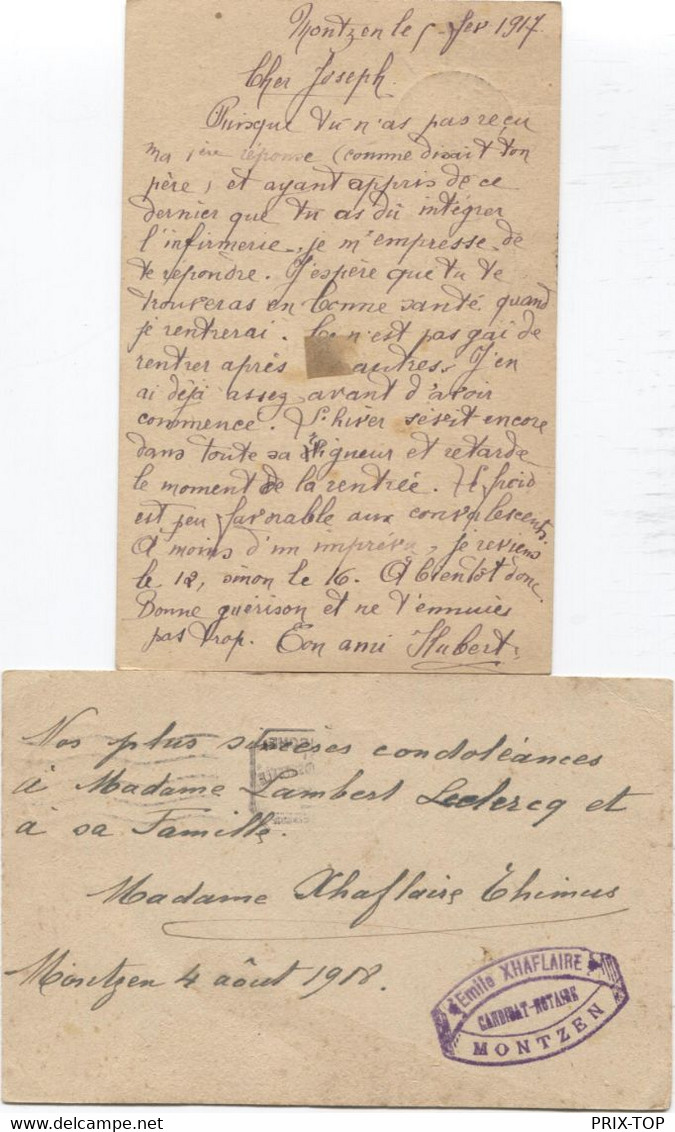 Montzen le 5 fev 1917.
Cher Joseph.
Puisque tu n'as pas reçu
ma 1ère réponse (comme disait ton
père, et ayant appris de ce
dernier que tu as dû intégrer
l'infirmerie, je m'empresse de
te répondre. J'espère que tu te
trouveras en bonne santé quand
je rentrerai. Ce n'est pas gai de
rentrer après autres. J'en
ai déjà assez avant d'avoir
commence. L'hiver sévit encore
dans toute sa rigueur et retarde
le moment de la rentrée. Le froid
est peu favorable aux convalescents.
A moins d'un imprévu, je reviens
le 12, sinon le 16. A bientôt donc.
Bonne guérison et ne t'ennuies
pas trop. Ton ami Hubert.
Nos plus sincères condoléances
à Madame Lambert Leclercq et
à sa Famille.
Madame Xhaflaire Thimus
Montzen 4 août 1918.
Emile XHAFLAIRE
CANDIDAT-NOTAIRE
MONTZEN
PRIX-TOP